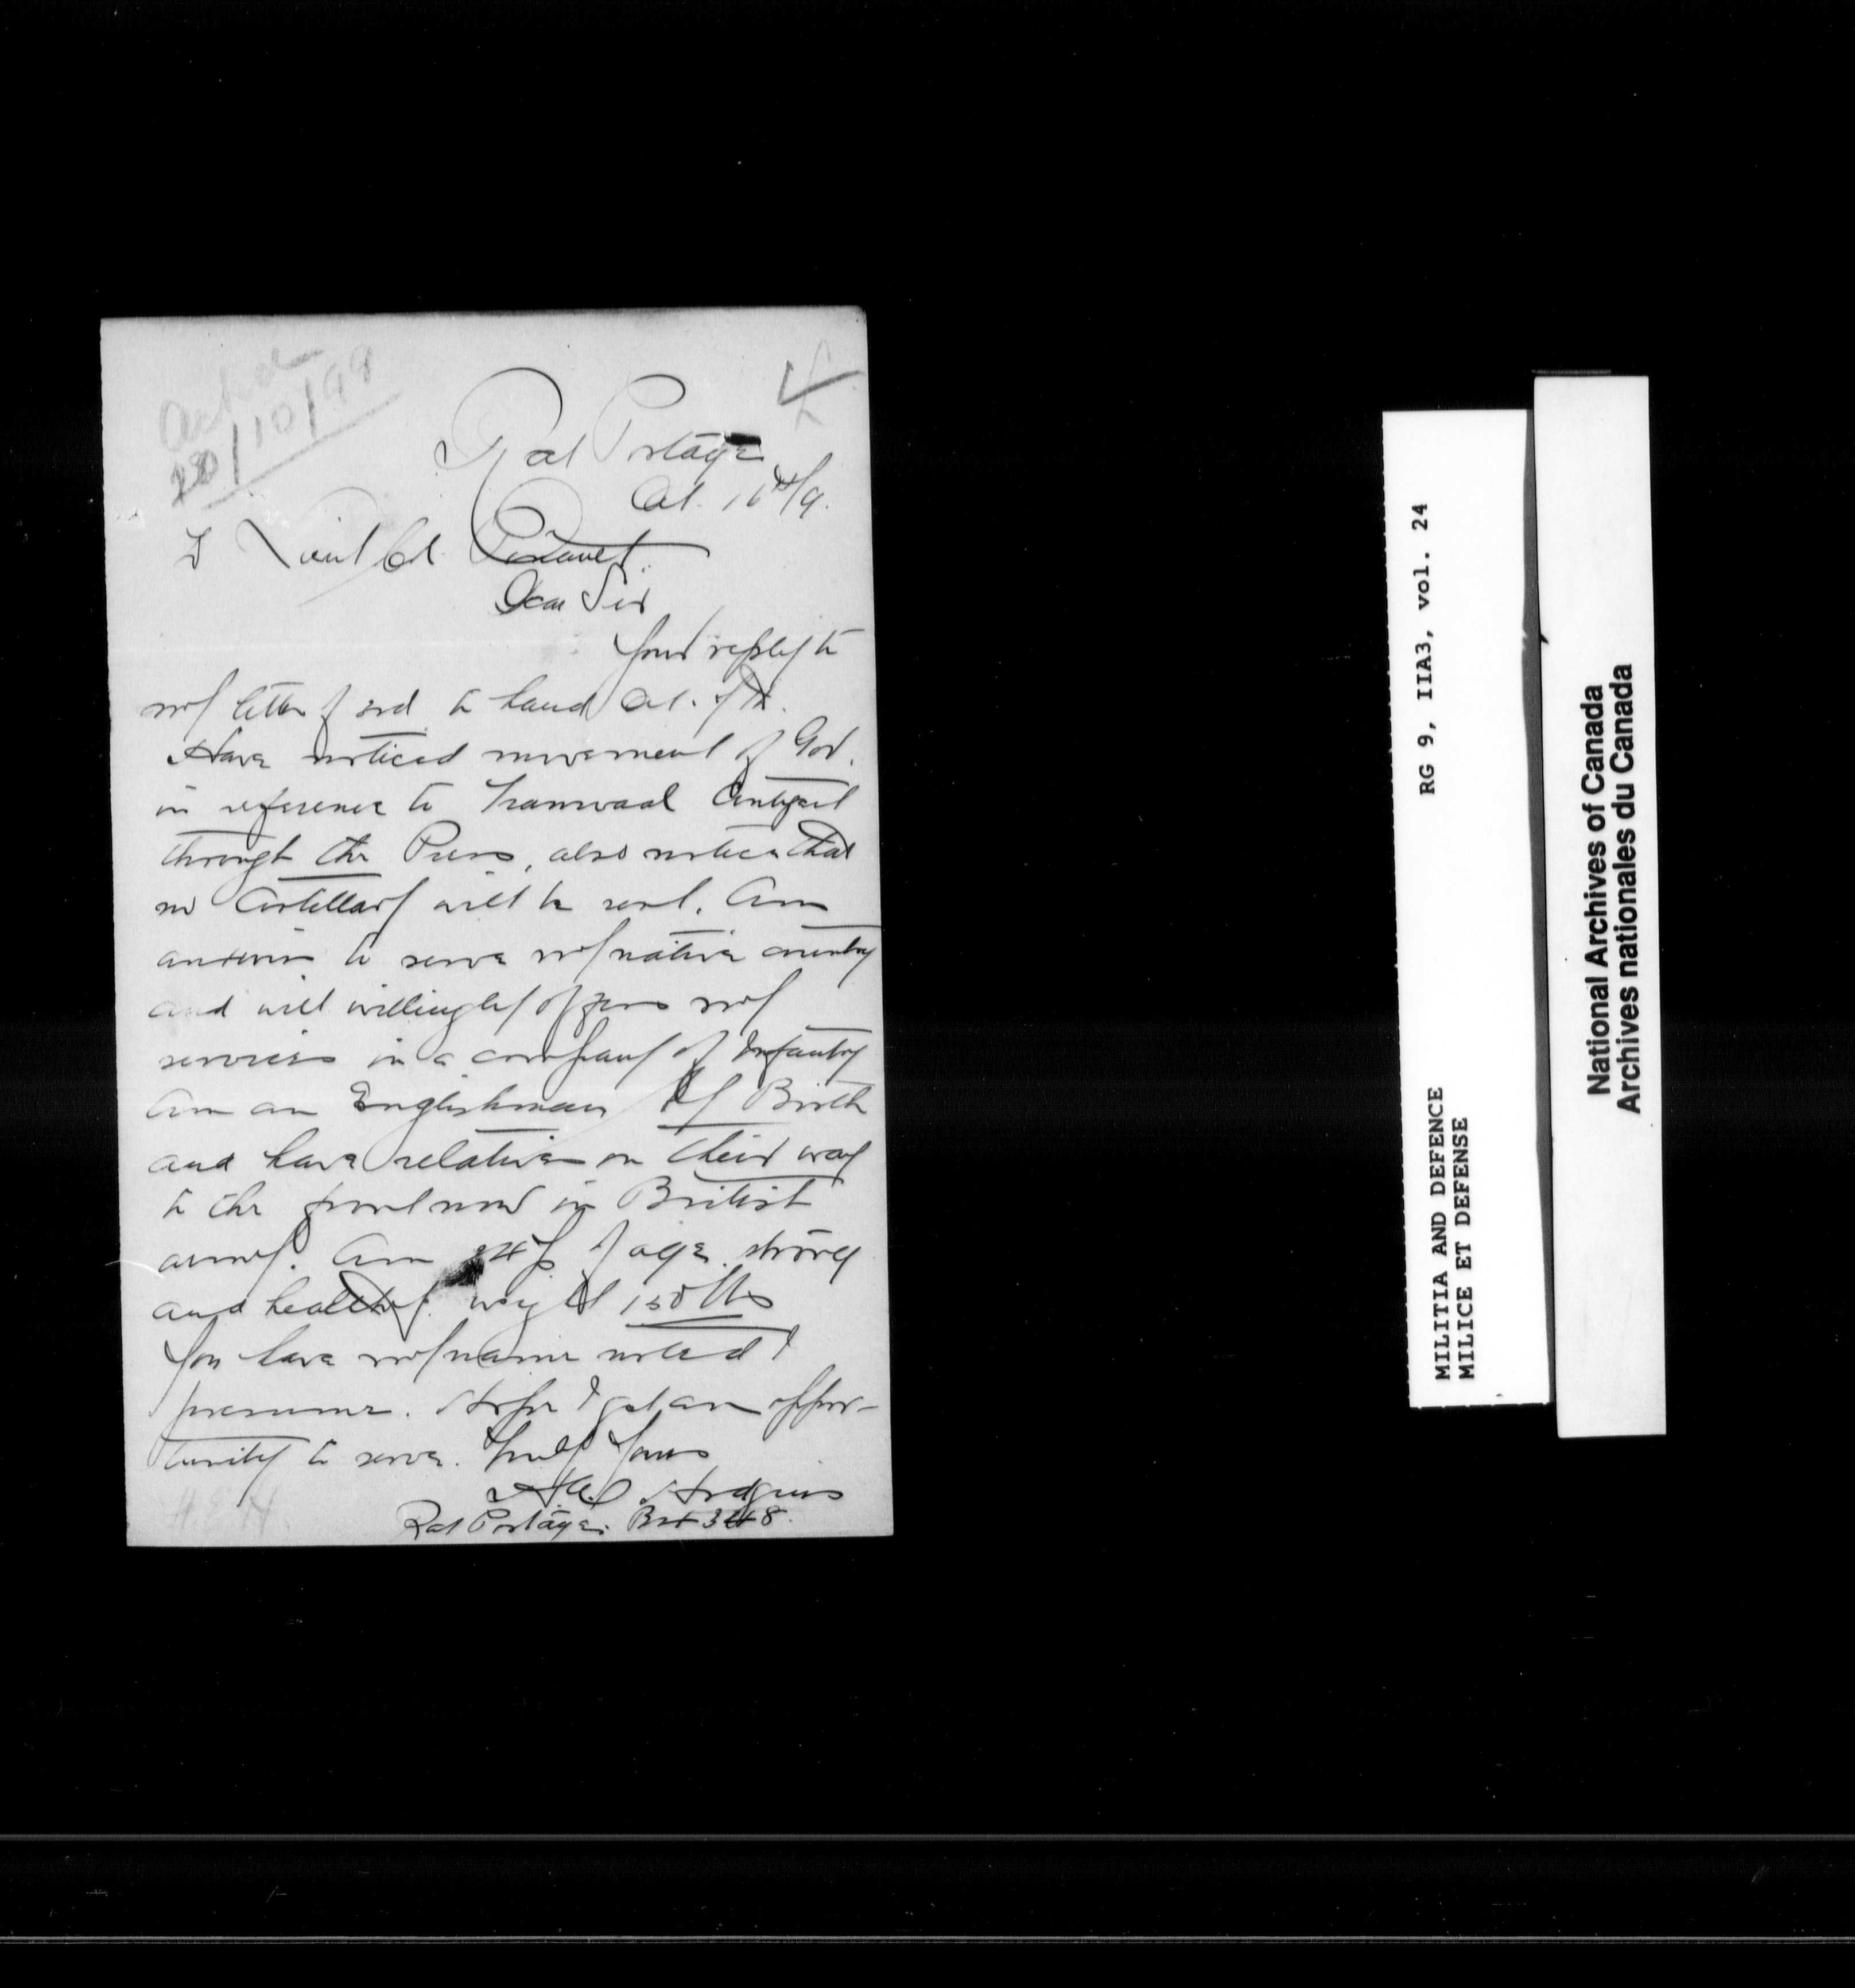 Ackd
20/10/99
Rat Portage
Oct. 16th/9.
To Lieut Col
Dear Sir
Your reply to
my letter of 3rd to hand Oct. 7th.
Have noticed movement of Gov.
in reference to Transvaal Contgent
through the Press, also notice that
no Artillary will be sent. Am
anxious to serve my native country
and will willingly offer my
services in a company of Infantry
Am an Englishman by Birth
and have relatives on their way
to the front now in British
army. Am 24 y of age strong
and healthy. weight 150 lbs
You have my name noted I
presume. Hope I get an oppor-
tunity to serve. Truly Yours
Hodgins
Rat Portage. Box 348.
H.E.H.
MILITIA AND DEFENCE RG 9, IIA3, vol. 24
MILICE ET DEFENSE
National Archives of Canada
Archives nationales du Canada